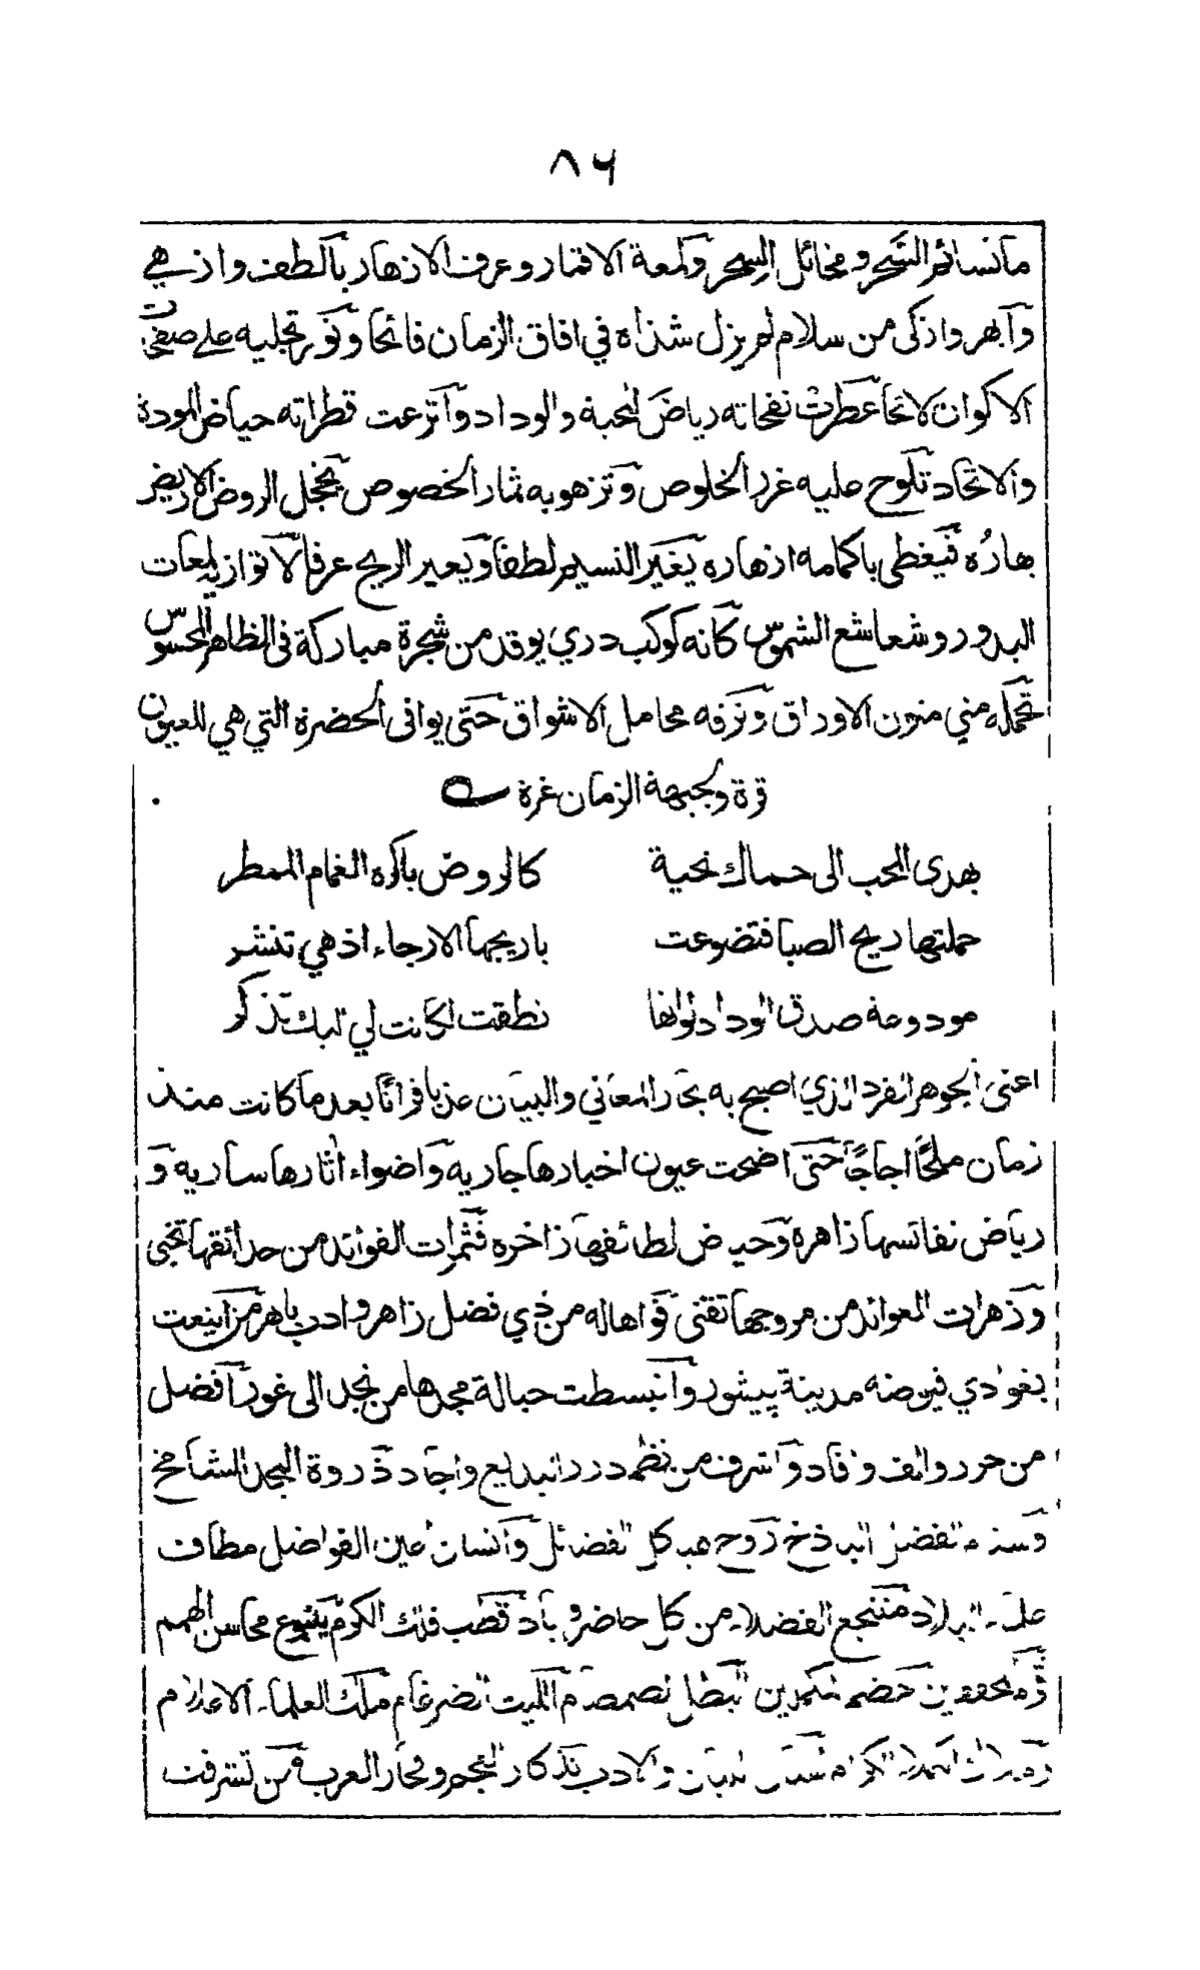 ٨٦
ما نسائم الشحر ومخائل السحر ولمعة الاقمار وعرف الازهار بالطف وازهى
وابهر واذكى من سلام لم يزل شذاه في افاق الزمان فائحا ونور تجليه على صفحات
الاكوان لائحا عطرت نفحاته رياض المحبة والوداد واترعت قطراته حياض المودة
والاتحاد تلوح عليه غرر الخلوص وتزهو به ثمار الخصوص يخجل الروض الاريض
بهاره فيغطى باكمامه ازهاره يغير النسيم لطفا ويعير الريح عرفا لا توازيه لمعات
البدور وشعاشع الشموس كانه كوكب دري يوقد من شجرة مباركة في الظاهر المحسوس
تحمله مني متون الاوراق وتزفه محامل الاشواق حتى يوافى الحضرة التي هي للعيون
قرة ولجبهة الزمان غرة
يهدى المحب الى حماك تحية كالروض باكره الغمام الممطر
حملتها ريح الصبا فتضوعت باريجها الارجاء اذ هي تنشر
مودوعة صدق الوداد لوانها نطقت لكانت لي لديك تذكر
اعنى الجوهر الفرد الذي اصبح به بحار المعاني والبيان عذبا فراتا بعد ما كانت منذ
زمان ملحا اجاجا حتى اضحت عيون اخبارها جاريه واضواء اثارها ساريه و
رياض نفائسها زاهره وحياض لطائفها زاخره فثمرات الفوائد من حدائقها تجنى
وزهرات العوائد من مروجها تقتنى فواها له من ذي فضل زاهر وادب باهر من اينعت
بغوادي فيوضه مدينة پيشور وانبسطت حبالة مجدها من نجد الى غور افضل
من حرر والف وفاد واشرف من نظم درر البديع واجاد ذروة المجد الشامخ
وسنام الفضل الباذخ روح هيكل الفضائل وانسان عين الفواضل مطاف
البلاد منتجع الفضلاء من كل حاضر وباد قطب فلك الكرم ينبوع محاسن الهمم
البطل الصمصام الليث الضرغام ملك العلماء الاعلام
الكرام والادب تذكار العجم وفخار العرب من تشرفت